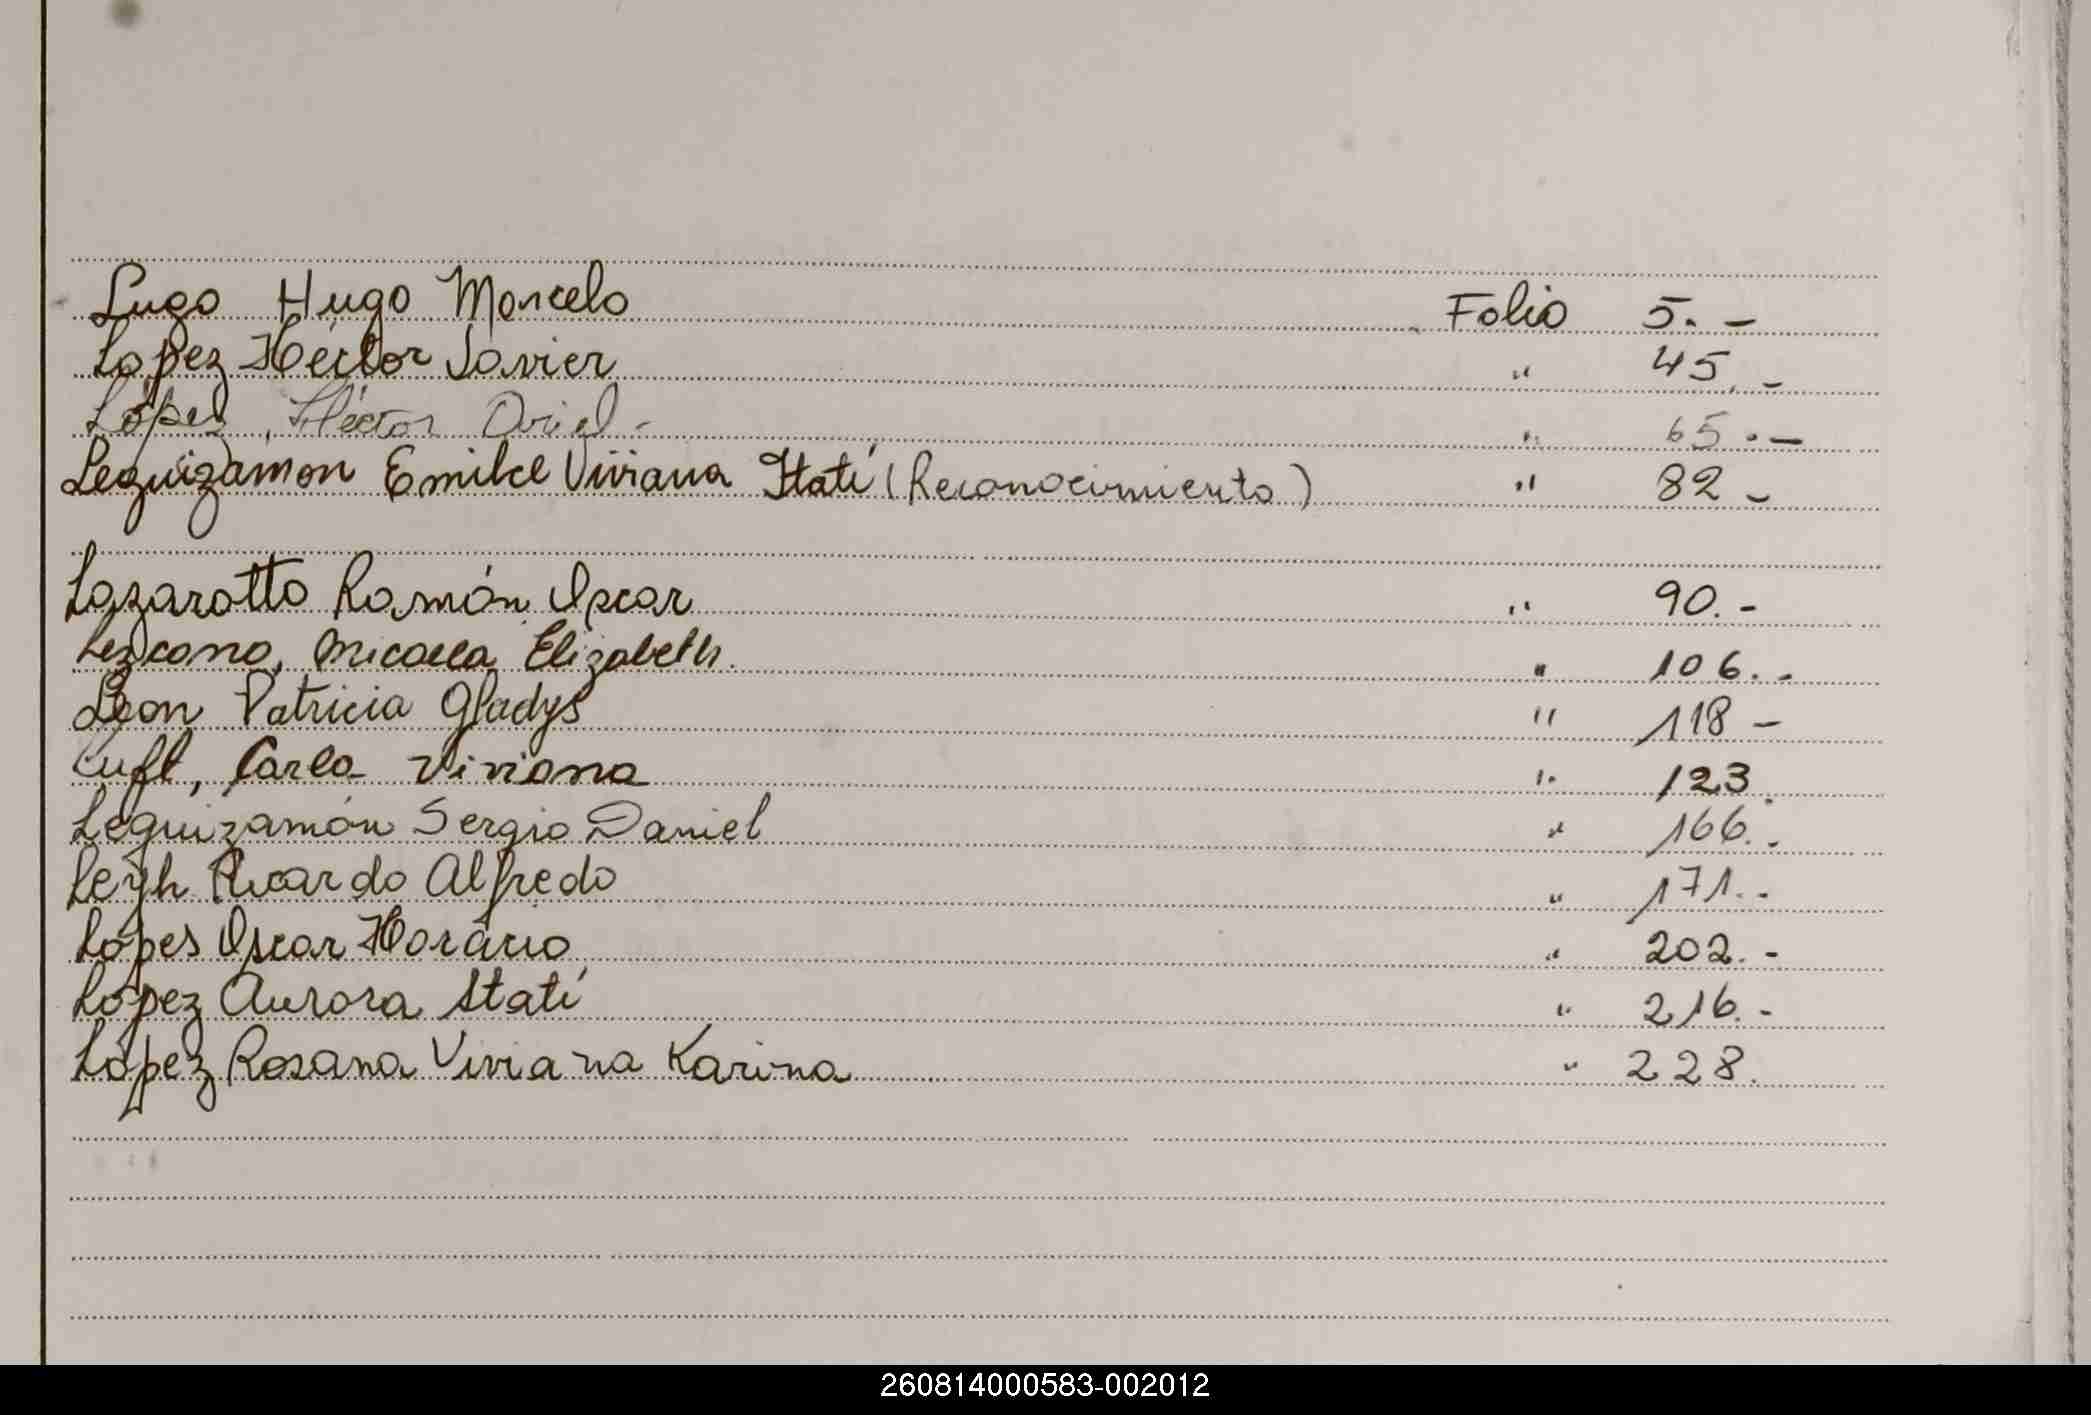 Lugo Hugo Marcelo Folio 5. -
Lopez Héctor Javier " 45. -
López, Héctor Ariel - " 65. -
Leguizamon Emilce Viviana Itatí (Reconocimiento) " 82 -
Lazarotto Ramón Oscar " 90. -
Lezcano, Micaela Elizabeth. " 106. -
Leon Patricia Gladys " 118 -
Luft, Carla Viviana " 123.
Leguizamón Sergio Daniel " 166. -
Leyh Ricardo Alfredo " 171. -
Lopes Oscar Horacio " 202. -
López Aurora Itatí " 216. -
López Rosana Viviana Karina " 228.
260814000583-002012